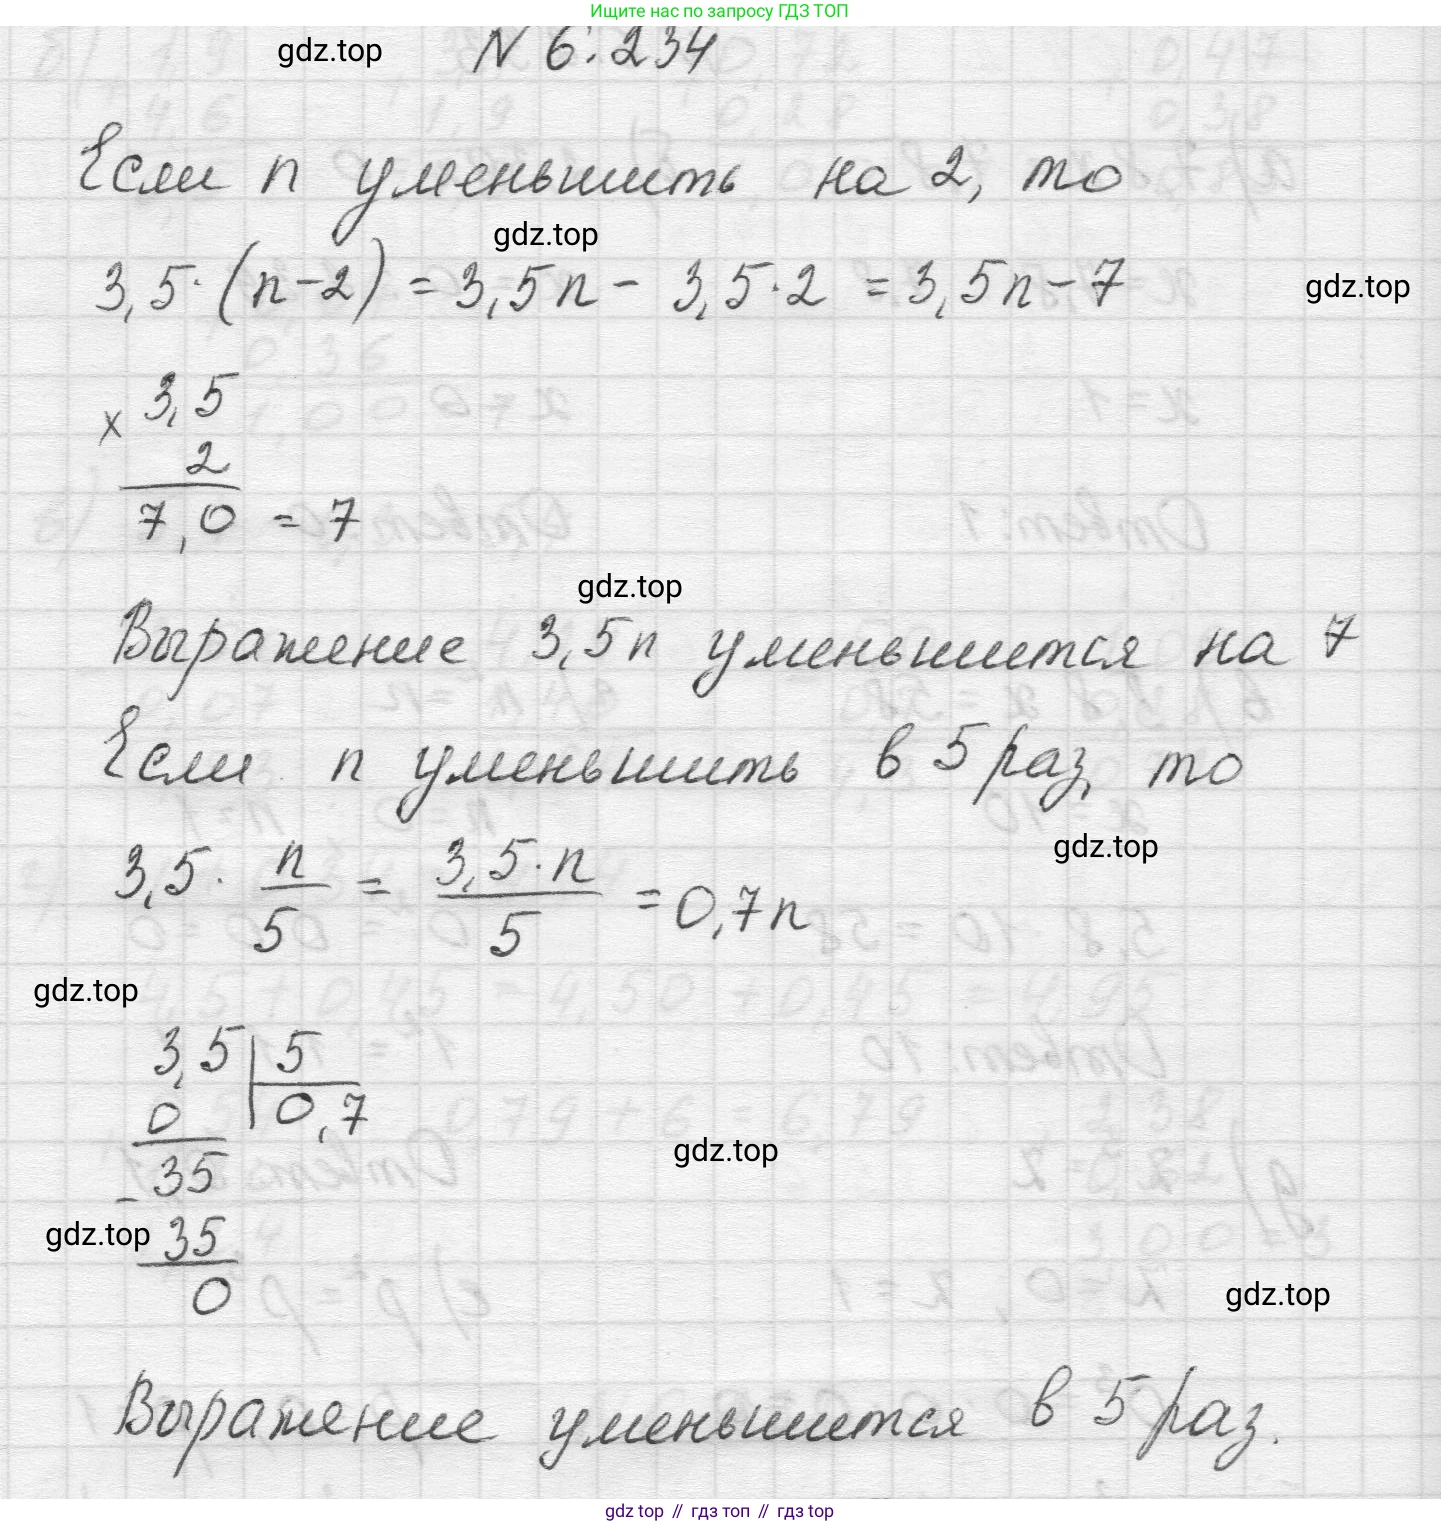 Ищите нас по запросу ГДЗ ТОП
gdz.top
N 6.234
Если n уменьшить на 2, то
gdz.top
3,5·(n-2) = 3,5n - 3,5·2 = 3,5n - 7
gdz.top
× 3,5
2
7,0 = 7
gdz.top
Выражение 3,5n уменьшится на 7
Если n уменьшить в 5 раз, то
gdz.top
3,5 · n/5 = 3,5·n/5 = 0,7n
gdz.top
3,5 | 5
0 0,7
gdz.top
- 35
gdz.top
35
0
gdz.top
Выражение уменьшится в 5 раз.
gdz top // гдз топ // gdz top